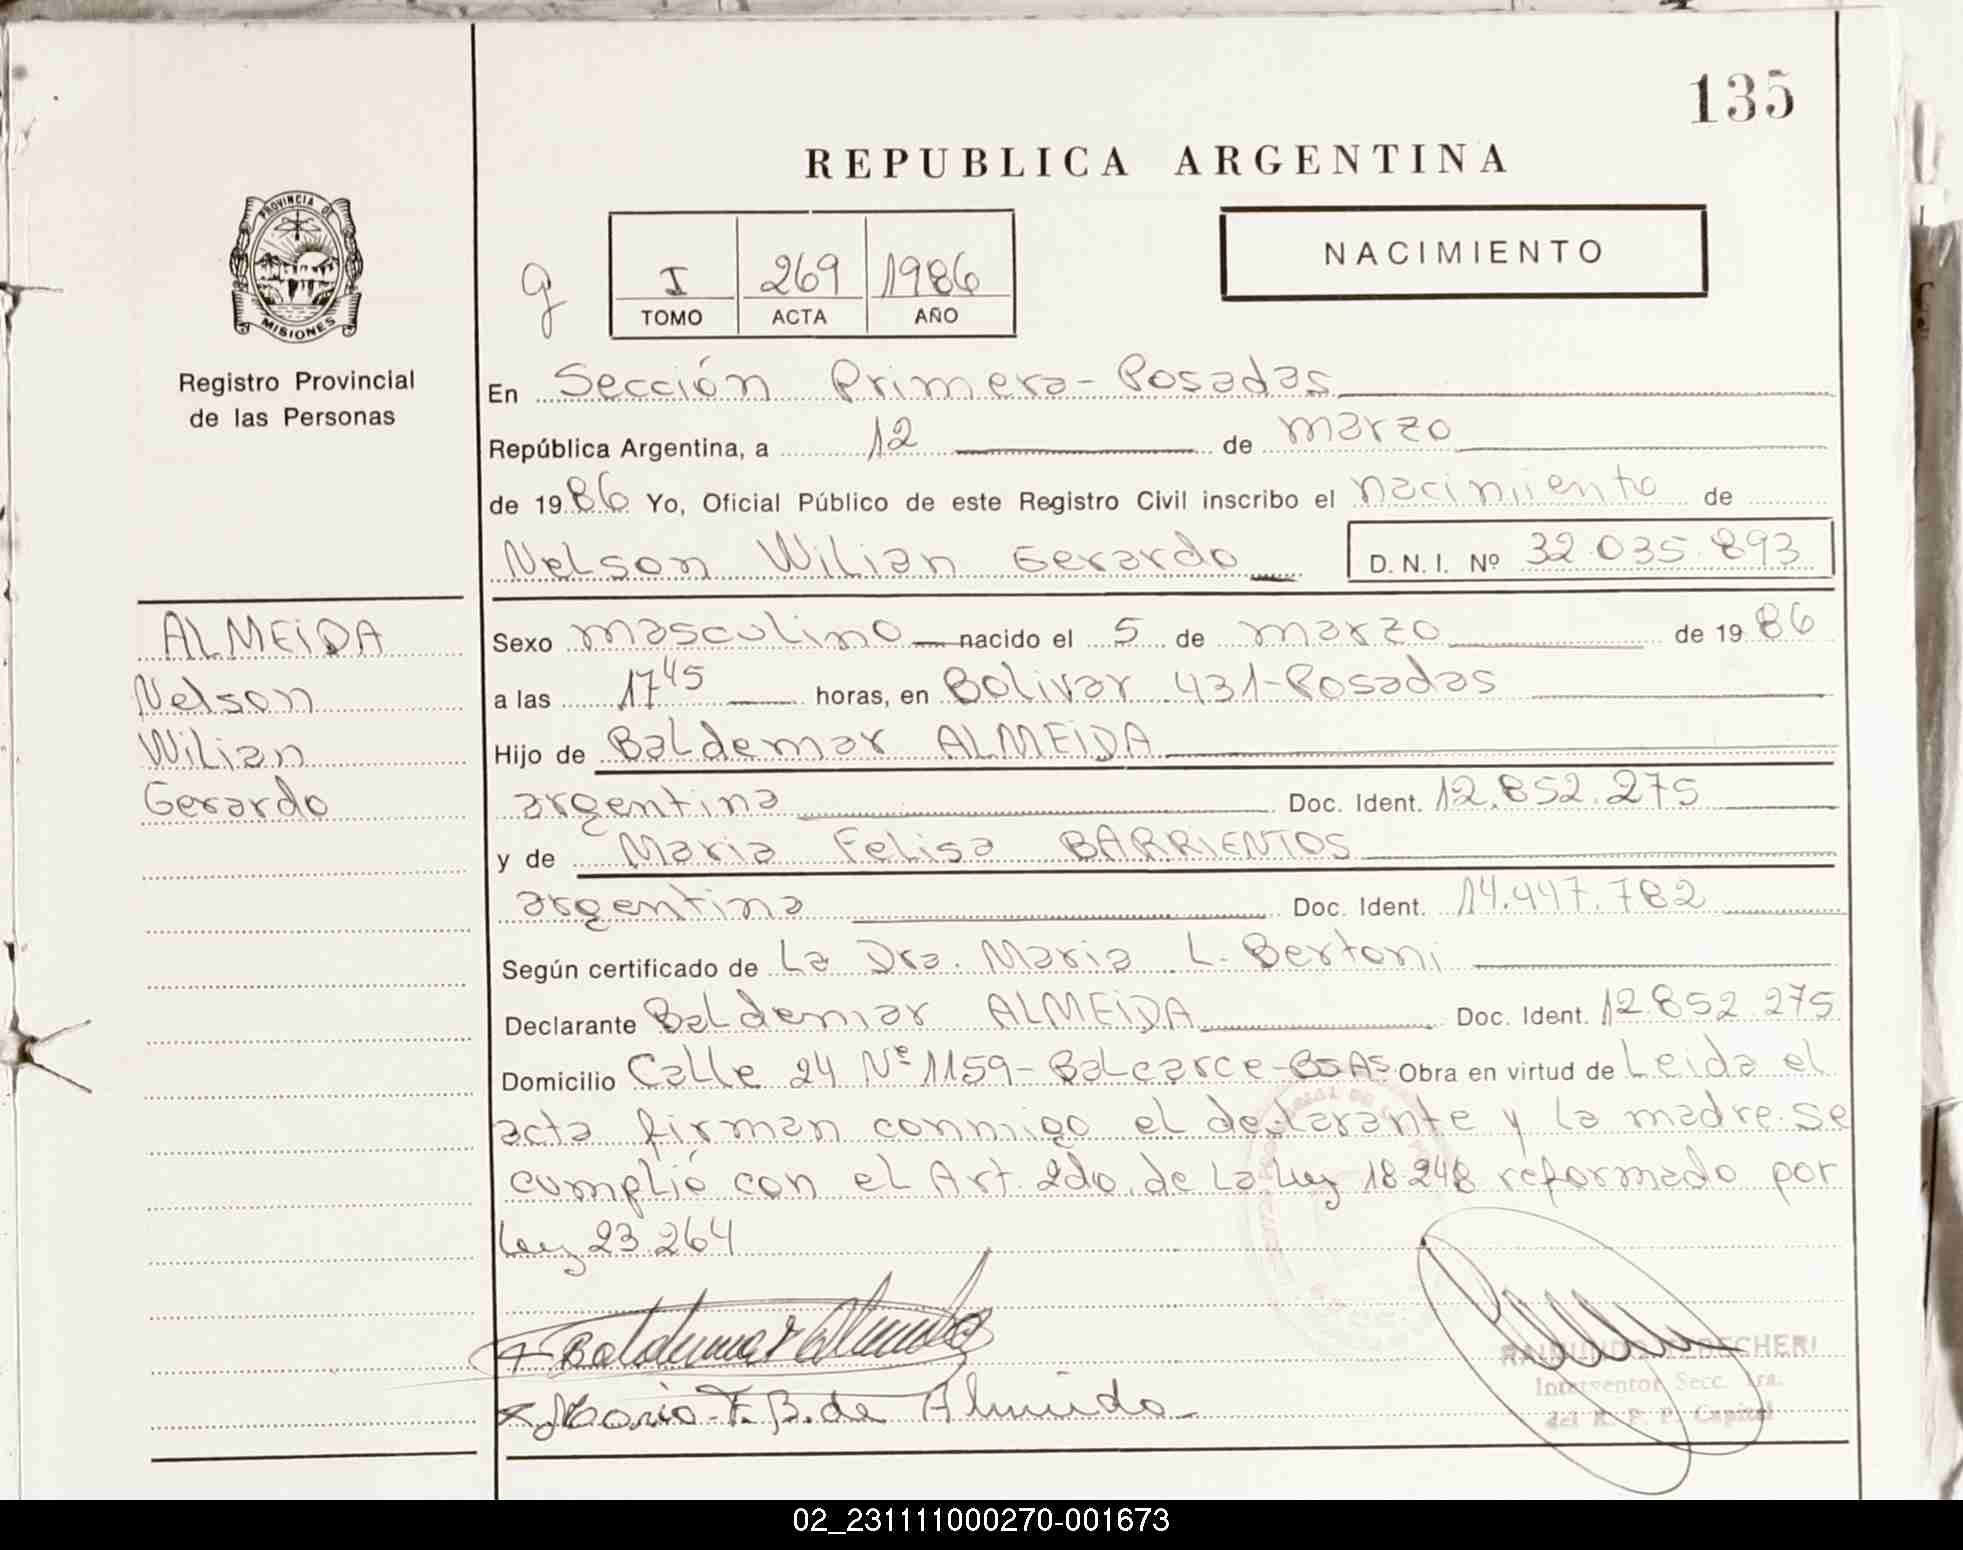 135
REPUBLICA ARGENTINA
PROVINCIA DE
MISIONES
Registro Provincial
de las Personas
g
I 269 1986
TOMO ACTA AÑO
NACIMIENTO
En Sección Primera - Posadas
República Argentina, a 12 de marzo
de 1986 Yo, Oficial Público de este Registro Civil inscribo el nacimiento de
Nelson Wilian Gerardo D. N. I. Nº 32.035.893
ALMEIDA
Nelson
Wilian
Gerardo
Sexo masculino nacido el 5 de marzo de 1986
a las 17 45 horas, en Bolivar 431-Posadas
Hijo de Baldemar ALMEIDA
argentina Doc. Ident. 12.852.275
y de Maria Felisa BARRIENTOS
argentina Doc. Ident. 14.447.782
Según certificado de La Dra. Maria L. Bertoni
Declarante Baldemar ALMEIDA Doc. Ident. 12.852.275
Domicilio Calle 24 Nº 1159-Balcarce-BsAs Obra en virtud de Leida el
acta firman conmigo el declarante y la madre. se
cumplió con el Art. 2do. de la Ley 18.248 reformado por
Ley 23.264
Baldemar Almeida
Maria F. B. de Almeida
Interventor Secc. 1ra.
del R. P. P. Capital
02_231111000270-001673